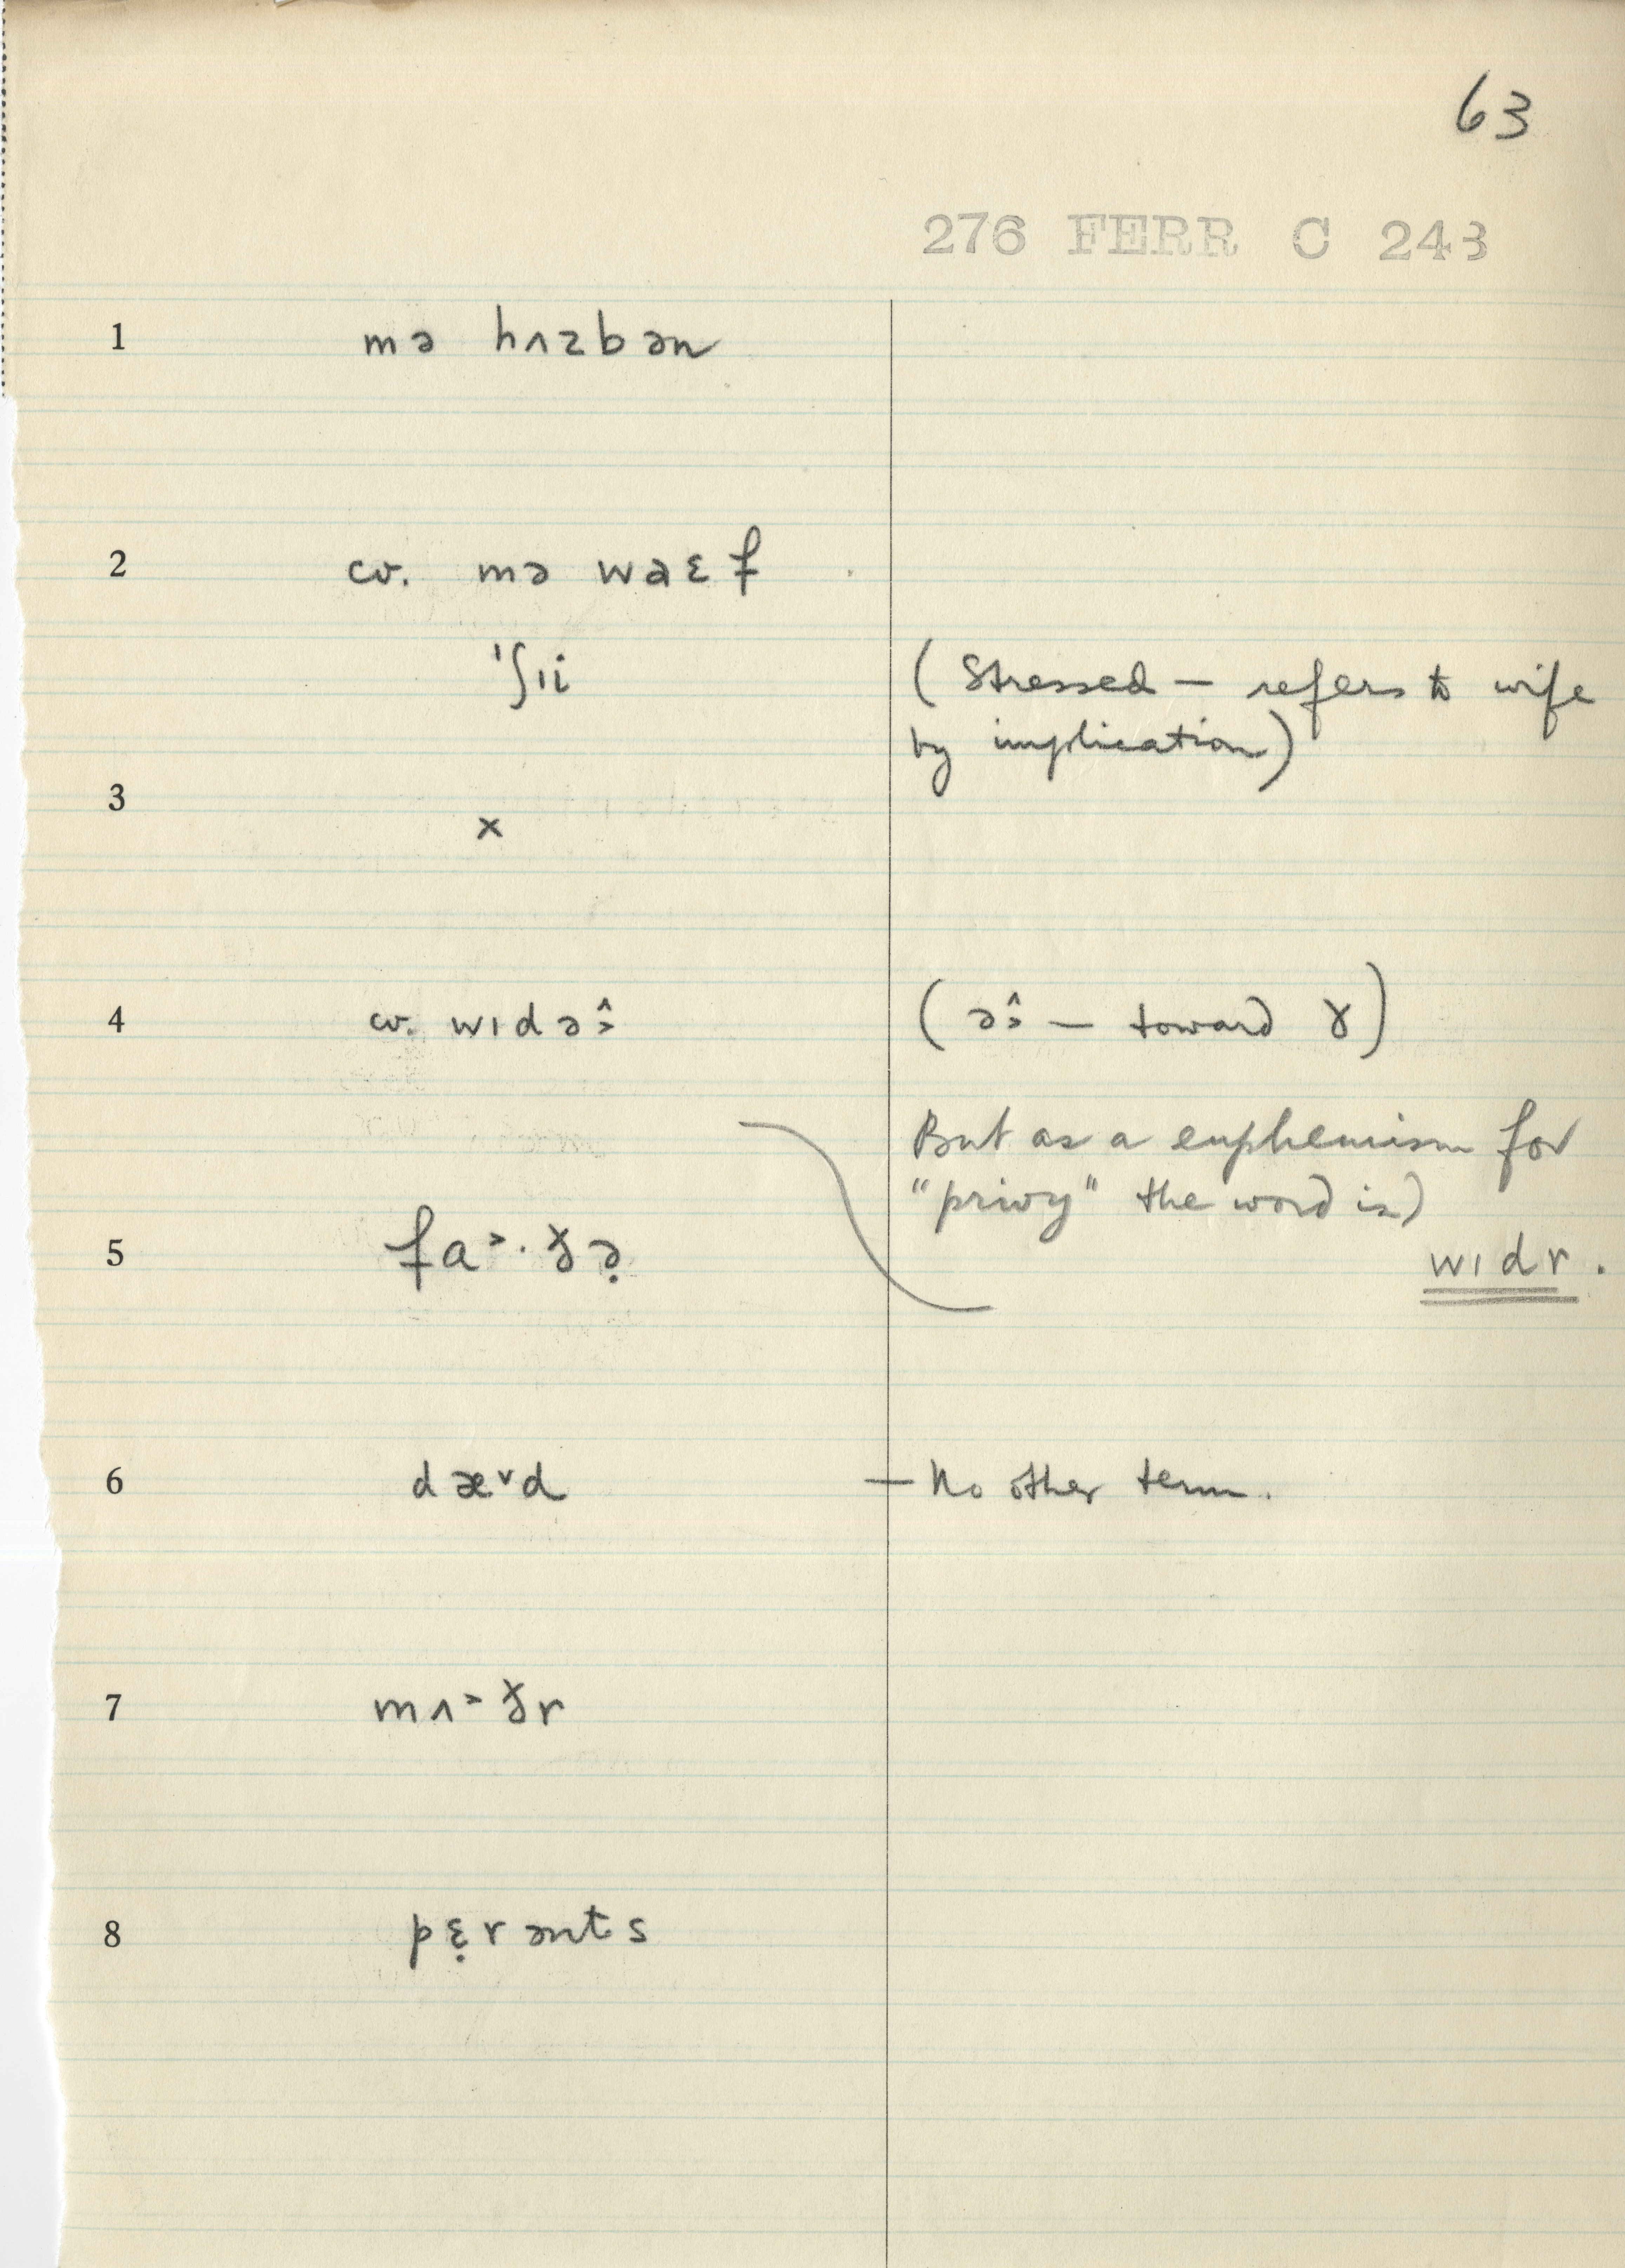 63
276 FERR C 243
1 mə hʌzbən
2 cv. mə waɛf
ˈʃɪi (Stressed — refers to wife
by implication)
3 ×
4 cv. wɪdə˃̂ (ə˃̂ — toward ɤ)
But as a euphemism for
"privy" the word is)
5 fa˃·ɣ̌ə̣ wɪdr.
6 dæ˅d — No other term.
7 mʌ˃ɣ̌r
8 pɛ̣rənts